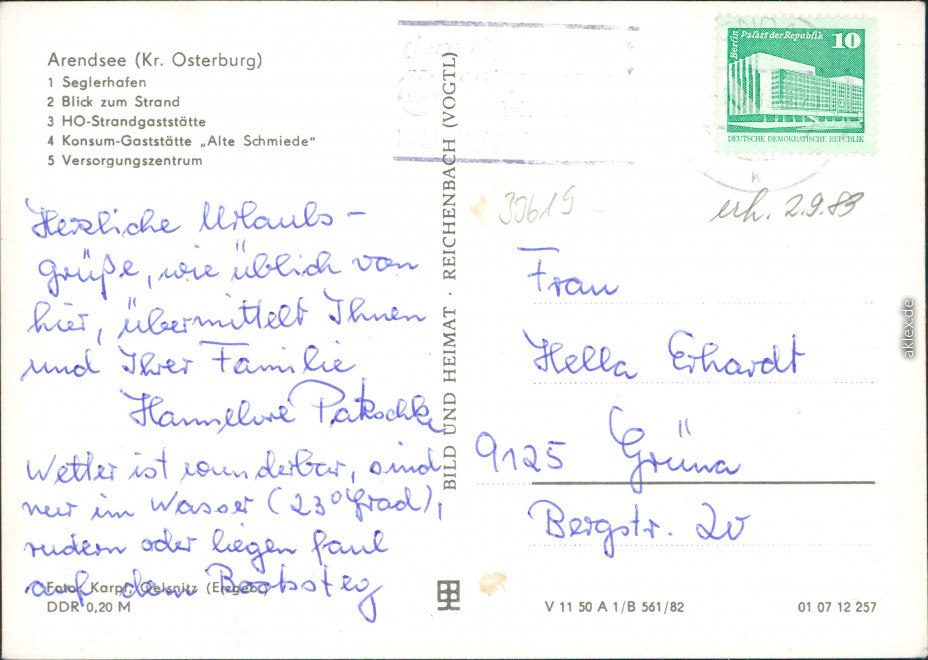 Arendsee (Kr. Osterburg)
1 Seglerhafen
2 Blick zum Strand
3 HO-Strandgaststätte
4 Konsum-Gaststätte „Alte Schmiede"
5 Versorgungszentrum
Herzliche Urlaubs-
grüße, wie üblich von
hier, übermittelt Ihnen
und Ihrer Familie
Hannelore Patzschke
Wetter ist wunderbar, sind
nur im Wasser (23° Grad),
rudern oder liegen faul
auf dem Bootssteg
Foto: Karpf, Oelsnitz (Erzgeb.)
DDR 0,20 M
BILD UND HEIMAT · REICHENBACH (VOGTL)
Berlin Palast der Republik 10
DEUTSCHE DEMOKRATISCHE REPUBLIK
k
39619
erh. 2.9.83
Frau
Hella Erhardt
9125 Grüna
Bergstr. 20
V 11 50 A 1/B 561/82
01 07 12 257
aklex.de